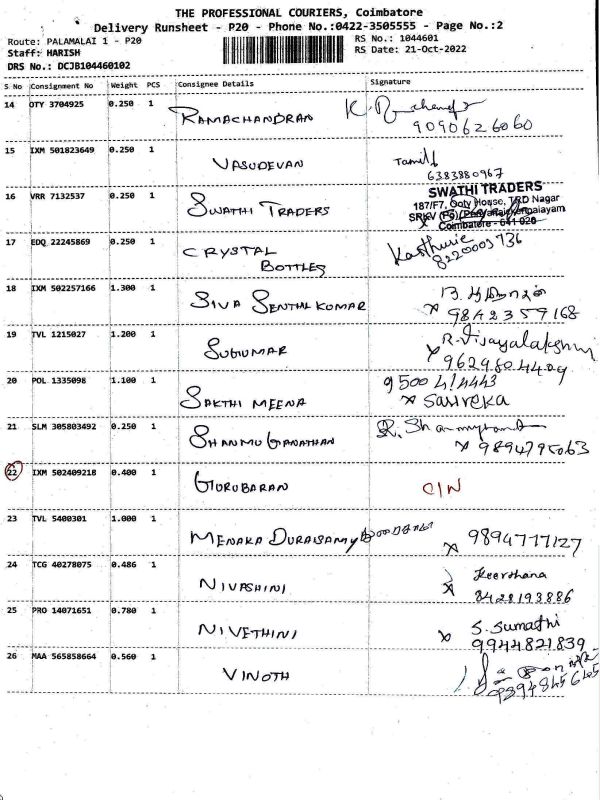 THE PROFESSIONAL COURIERS, Coimbatore
Delivery Runsheet - P20 - Phone No.:0422-3505555 - Page No.:2
Route: PALAMALAI 1 - P20 RS No.: 1044601
Staff: HARISH RS Date: 21-Oct-2022
DRS No.: DCJB104460102
S No Consignment No Weight PCS Consignee Details Signature
14 OTY 3704925 0.250 1 RAMACHANDRAN
9090626060
15 IXM 501823649 0.250 1 VASUDEVAN
6383880967
16 VRR 7132537 0.250 1 SWATHI TRADERS SWATHI TRADERS
187/F7, Ooty House, TRD Nagar
Coimbatore - 641 020
17 EDQ 22245869 0.250 1 CRYSTAL Kasthurie
BOTTLES 8220003736
18 IXM 502257166 1.300 1 SIVA SENTHIL KUMAR
x 9842359168
19 TVL 1215027 1.200 1 SUGUMAR x R. Vijayalakshmi
9629804409
20 POL 1335098 1.100 1 SAKTHI MEENA 9500414443
x Sasireka
21 SLM 305803492 0.250 1 SHANMUGANATHAN
x 9894795063
22 IXM 502409218 0.400 1 GURUBARAN C/N
23 TVL 5400301 1.000 1 MENAKA DURAISAMY x 9894777127
24 TCG 40278075 0.486 1 NIVASHINI x Keerthana
8428193886
25 PRO 14071651 0.780 1 NIVETHINI x S. Sumathi
9944821839
26 MAA 565858664 0.560 1 VINOTH